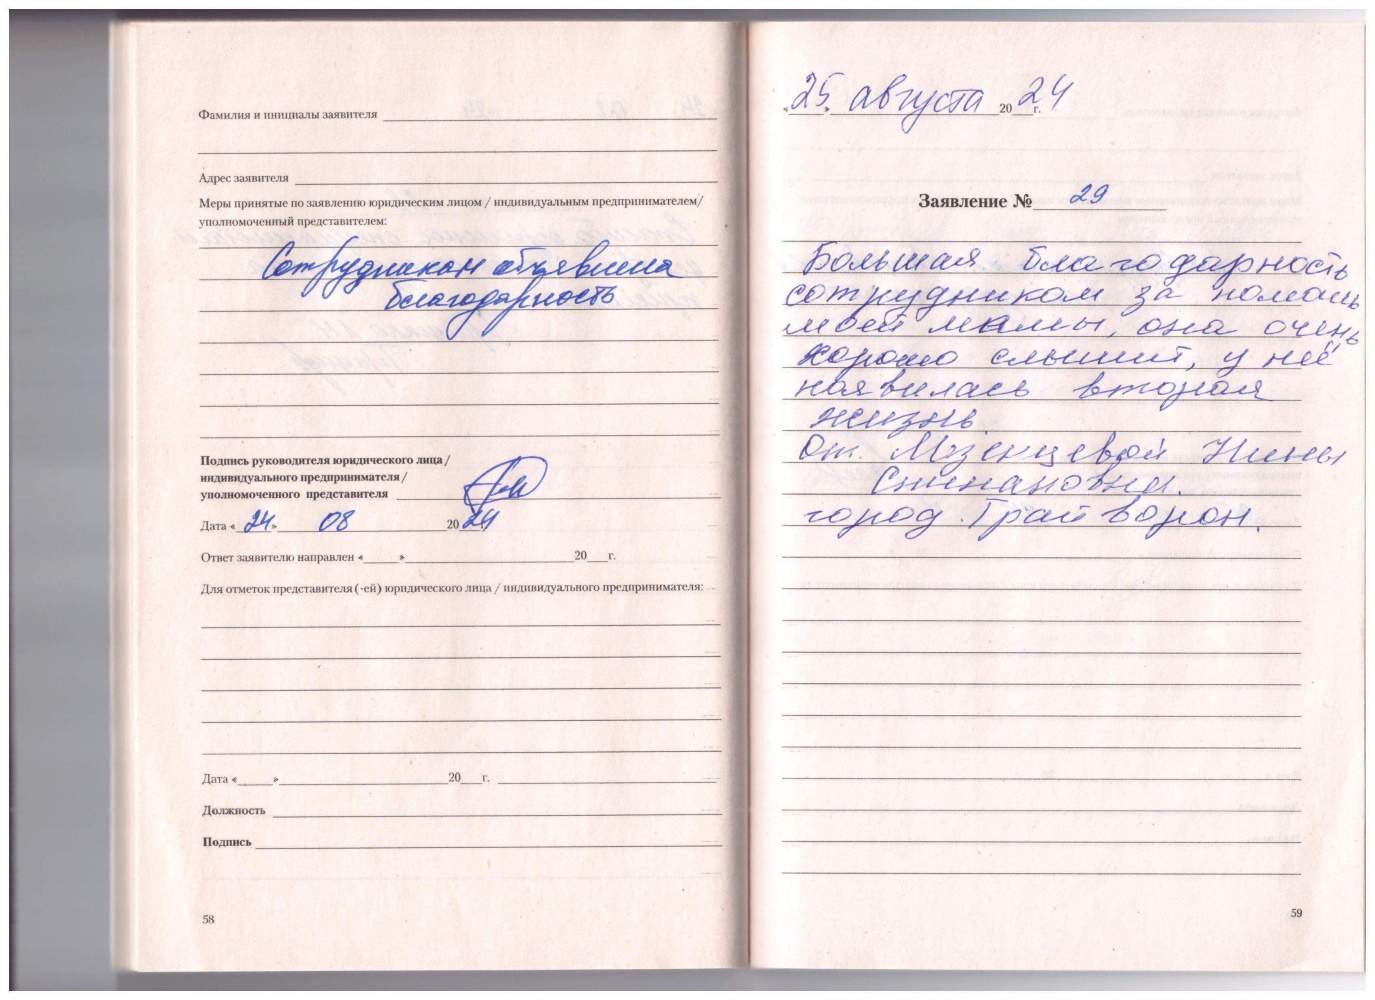 Фамилия и инициалы заявителя
Адрес заявителя
Меры принятые по заявлению юридическим лицом / индивидуальным предпринимателем/
уполномоченный представителем:
Сотрудникам объявлена
благодарность
Подпись руководителя юридического лица /
индивидуального предпринимателя /
уполномоченного представителя
Дата «24» 08 2024 г.
Ответ заявителю направлен «____»____20__г.
Для отметок представителя (-ей) юридического лица / индивидуального предпринимателя:
Дата «____»____20__г.
Должность
Подпись
58
«25» августа 2024 г.
Заявление № 29
Большая благодарность
сотрудником за помощь
моей мамы, она очень
хорошо слышит, у неё
появилась вторая
жизнь.
От Мезенцевой Нины
город Грайворон.
59